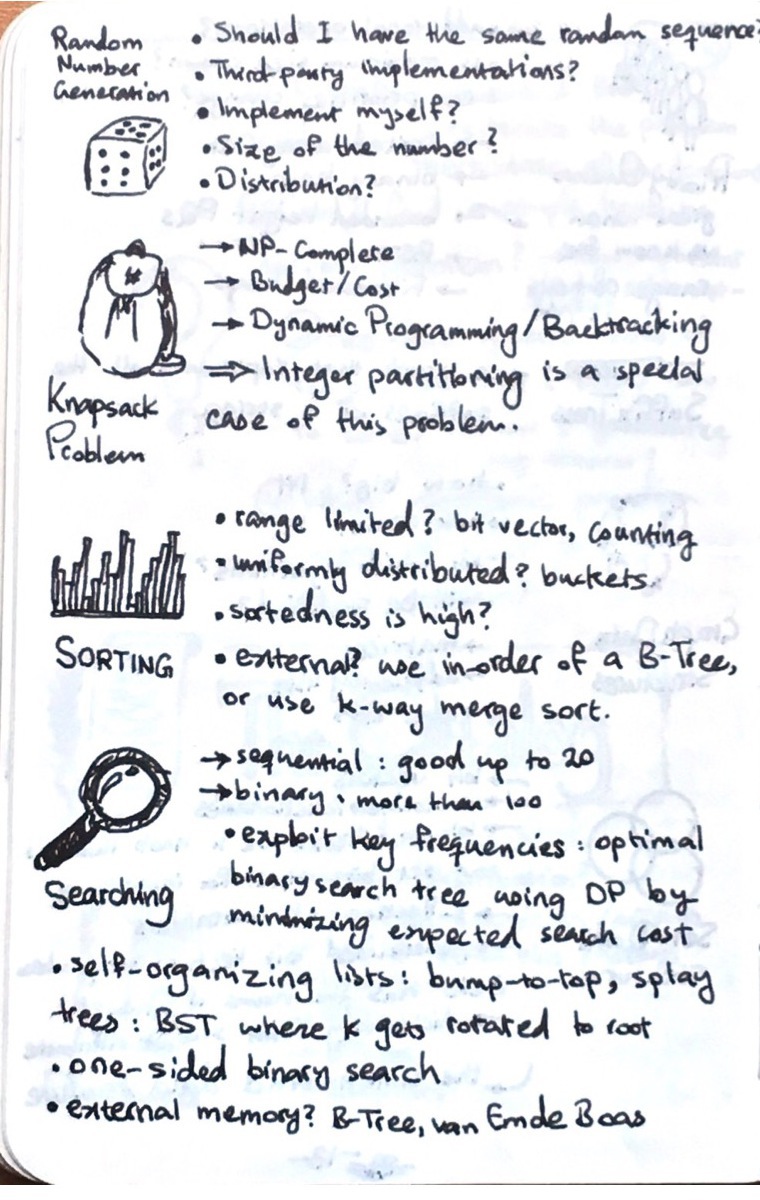 Random
Number
Generation
• Should I have the same random sequence?
• Third-party implementations?
• Implement myself?
• Size of the number?
• Distribution?
Knapsack
Problem
→ NP-Complete
→ Budget/Cost
→ Dynamic Programming/Backtracking
⇒ Integer partitioning is a special
case of this problem.
SORTING
• range limited? bit vector, counting
• uniformly distributed? buckets.
• sortedness is high?
• external? use in-order of a B-Tree,
or use k-way merge sort.
Searching
→ sequential : good up to 20
→ binary : more than 100
• exploit key frequencies : optimal
binary search tree using DP by
minimizing expected search cost
• self-organizing lists : bump-to-top, splay
trees : BST where k gets rotated to root
• one-sided binary search
• external memory? B-Tree, van Emde Boas